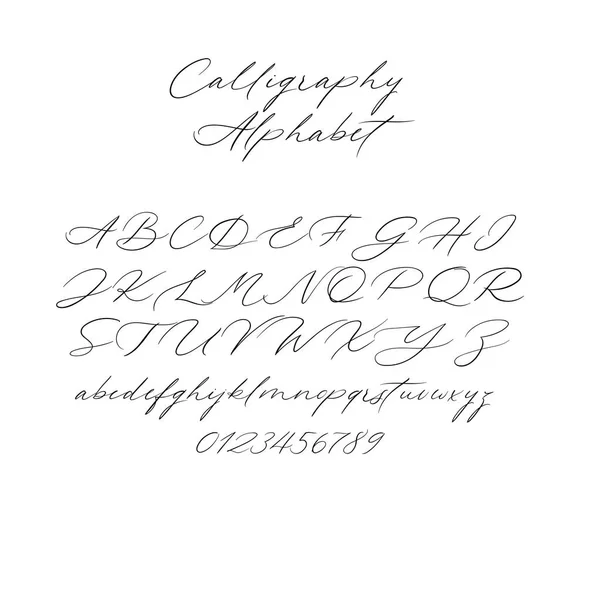 Calligraphy
Alphabet
A B C D E F G H I
J K L M N O P Q R
S T U V W X Y Z
abcdefghijklmnopqrstuvwxyz
0123456789